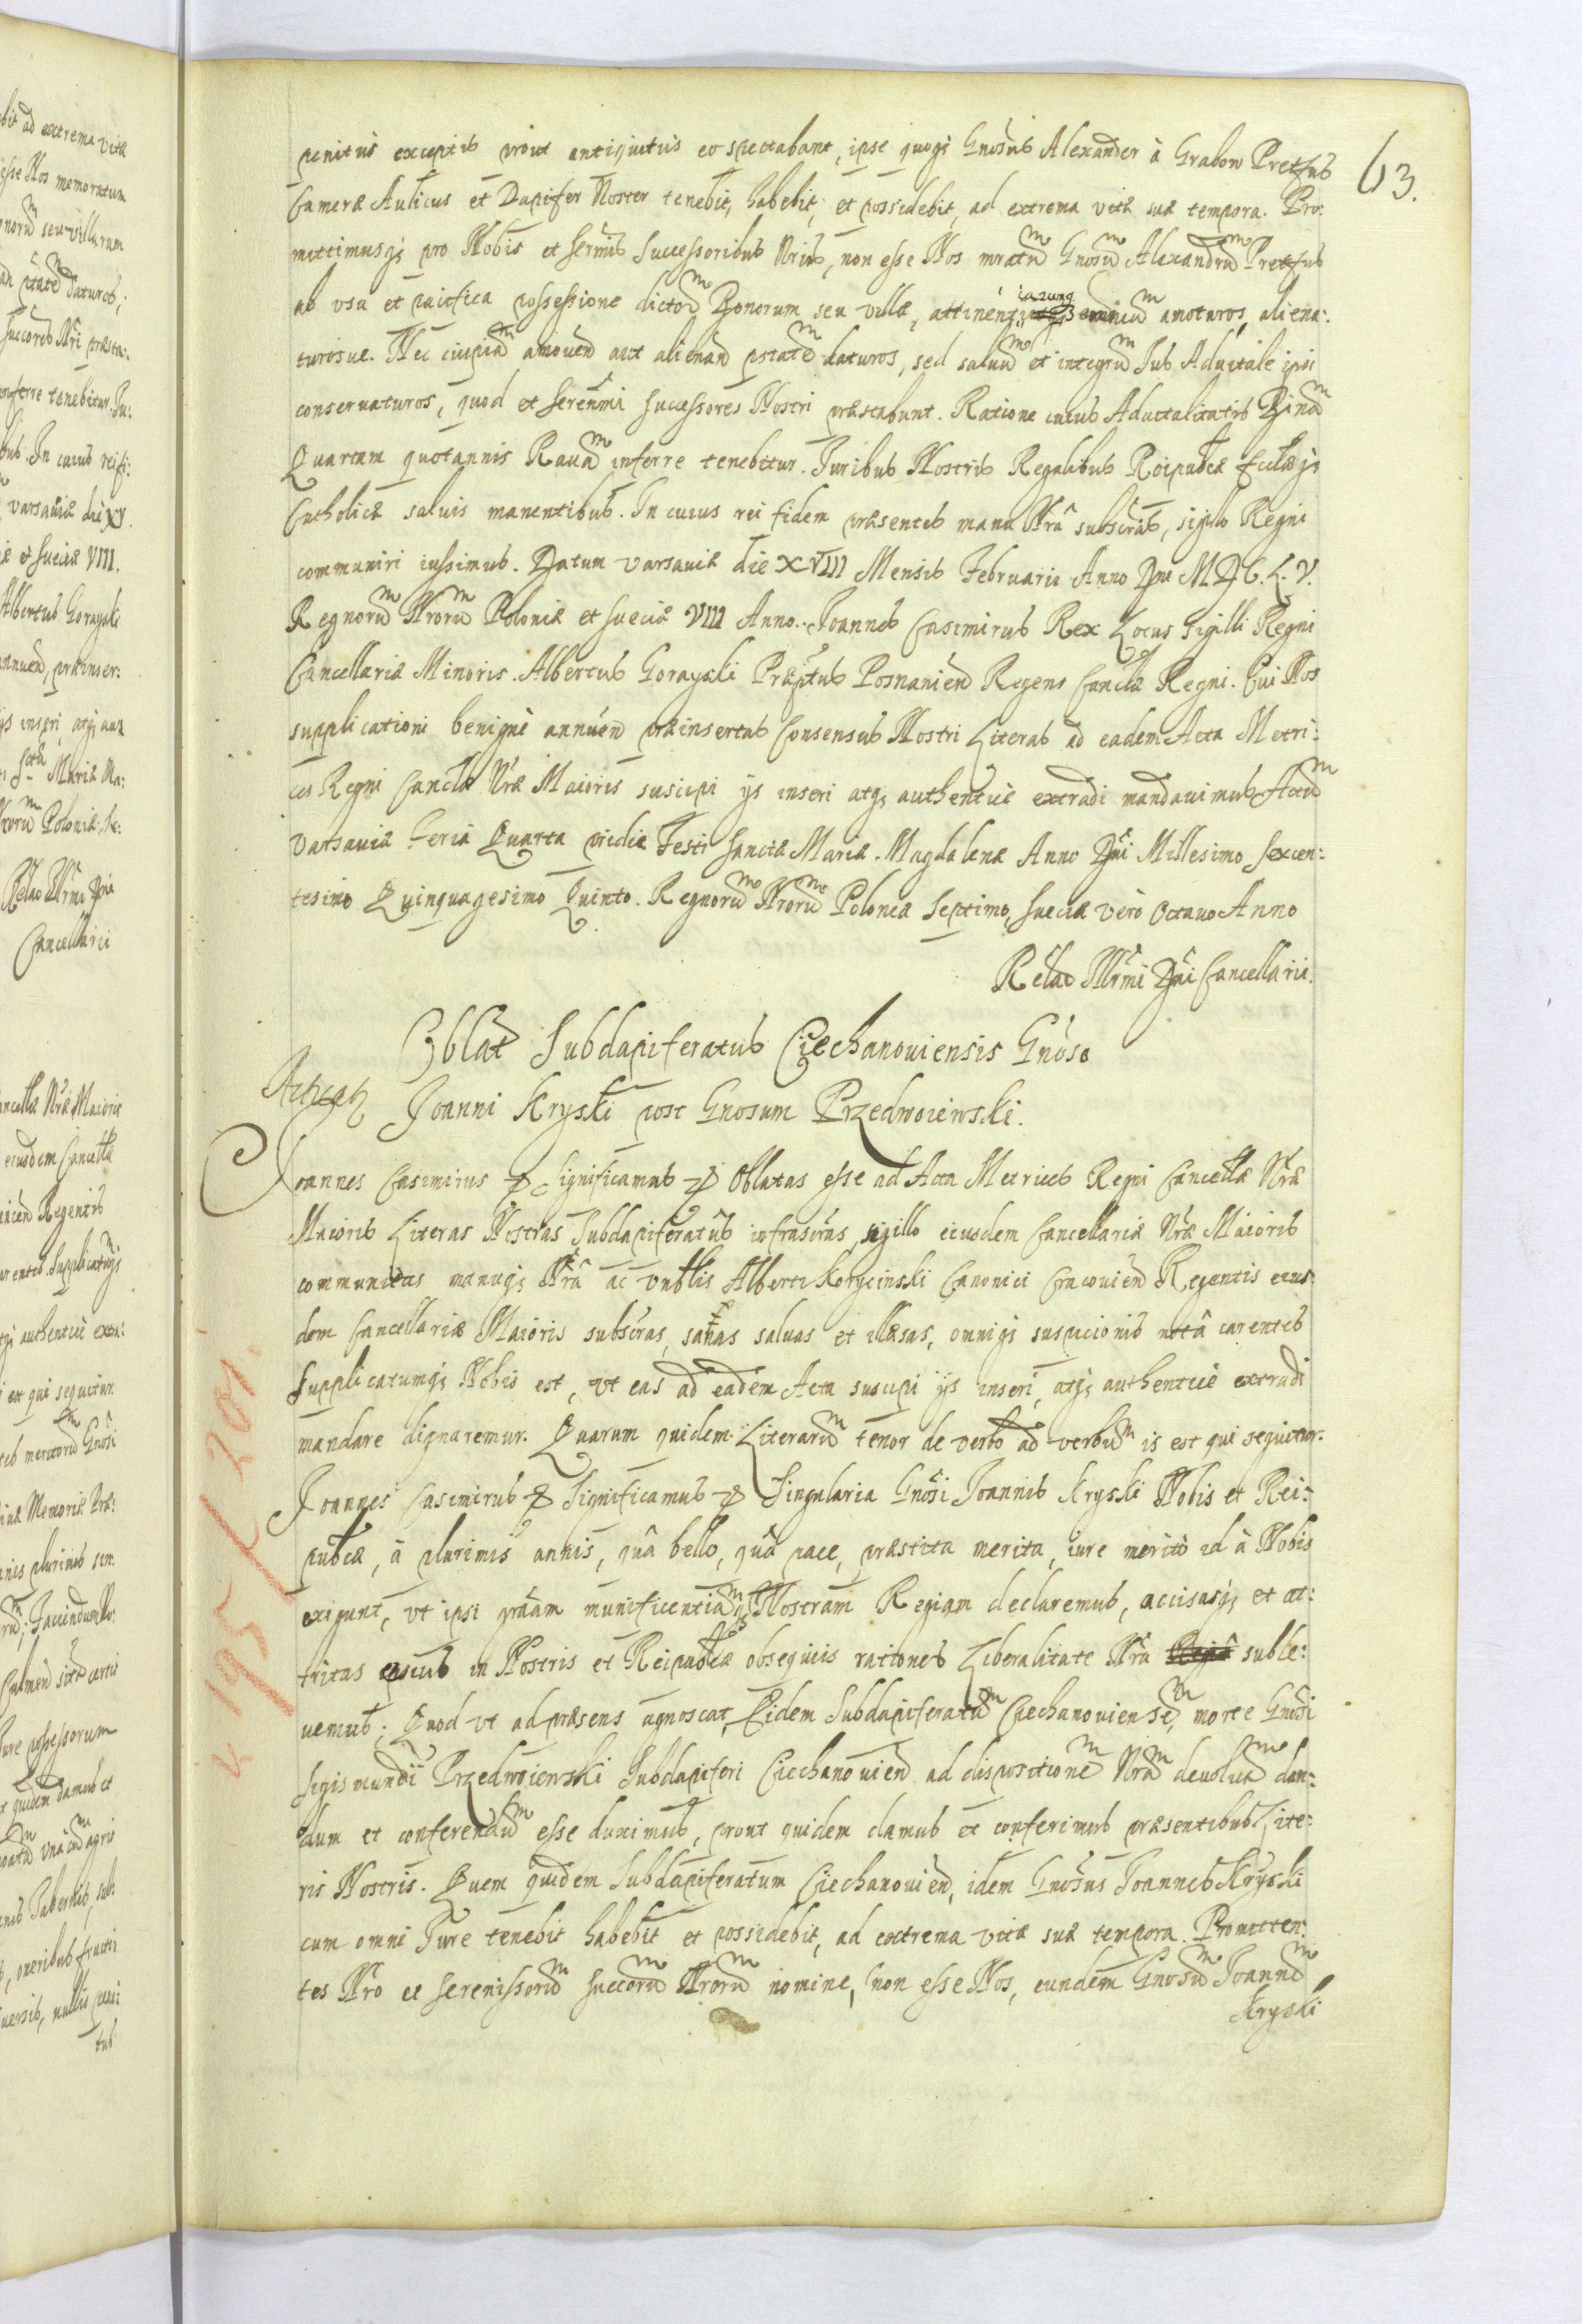 63.
penitus exceptis prout antiquitus eo spectabant, ipse quoq; Gnosus Alexander à Grabow Pretfus
Cameræ Aulicus et Dapifer Noster tenebit, habebit, et possidebit, ad extrema vitæ suæ tempora. Pro:
mittimusq; pro Nobis et Sermis Successoribus Nris, non esse Nos mratum Gnosum Alexandrum Pretfus
ab usu et pacifica possessione dictorum Bonorum seu villæ, attinen: amoturos, aliena:
turosue. Nec cuipiam amouen aut alienan ptatem daturos, sed saluum et integrum Ius Aduitale ipsi
conseruaturos, quod et Serenmi Successores Nostri præstabunt. Ratione cuius Aduitalitatis Binam
Quartam quotannis Rauam inferre tenebitur. Iuribus Nostris Regalibus Reipubcæ Ecclæq;
Catholicæ saluis manentibus. In cuius rei fidem præsentes manu Nrâ subscrâs, sigillo Regni
communiri iussimus. Datum Varsauiæ die XVIII Mensis Februarii Anno Dni M.D.C.L.V.
Regnorum Nrorum Poloniæ et Sueciæ VIII Anno. Joannes Casimirus Rex Locus Sigilli Regni
Cancellariæ Minoris. Albertus Gorayski Præptus Posnanien Regens Cancllæ Regni. Cui Nos
supplicationi benignè annuen præinsertas Consensus Nostri Literas ad eadem Acta Metri:
ces Regni Cancllæ Nræ Maioris suscipi ijs inseri atq; authenticè extradi mandauimus Actum
Varsauiæ Feria Quarta pridie Festi Sanctæ Mariæ Magdalenæ Anno Dni Millesimo Sexcen:
tesimo Quinquagesimo Quinto. Regnorum Nrorum Poloniæ Septimo, Sueciæ vero Octauo Anno
Relao Illrmi Dni Cancellarii.
Oblat Subdapiferatus Ciechanouiensis Gnoso
Joanni Kryski post Gnosum Przedwoiewski.
Joannes Casimirus Significamus Oblatas esse ad Acta Metrices Regni Cancellæ Nræ
Maioris Literas Nostras Subdapiferatus infrascras, sigillo eiusdem Cancellariæ Nræ Maioris
communitas manuq; Nrâ ac Vnblis Alberti Korycinski Canonici Cracouien Regentis eius:
dem Cancellariæ Maioris subscras, sanas saluas et illæsas, omniq; suspicionis notâ carentes
Supplicatumq; Nobis est, vt eas ad eadem Acta suscipi ijs inseri, atq; authenticè extradi
mandare dignaremur. Quarum quidem Literarum tenor de verbo ad verbum is est qui sequitur.
Joannes Casimirus Significamus Singularia Gnosi Joannis Kryski Nobis et Rei:
pubcæ, à plurimis annis, quâ bello, quâ pace, præstita merita, iure meritò id à Nobis
exigunt, vt ipsi grâam munificentiamq; Nostram Regiam declaremus, accisasq; et at:
tritas eius in Nostris et Reipubcæ obsequiis rationes Liberalitate Nrâ suble:
uemus; Quod vt ad præsens agnoscat, Eidem Subdapiferatum Ciechanouiensem, morte Gnosi
Sigismundi Przedwoiewski Subdapiferi Ciechanouien ad dispositionem Nram deuolutum dan:
dum et conferendum esse duximus, prout quidem damus et conferimus præsentibus Lite:
ris Nostris. Quem quidem Subdapiferatum Ciechanouien, idem Gnosus Joannes Kryski
cum omni Iure tenebit habebit et possidebit, ad extrema vitæ suæ tempora. Promitten:
tes Nro et Serenissorum Succorum Nrorum nomine, non esse Nos, eundem Gnosum Joannem
Kryski